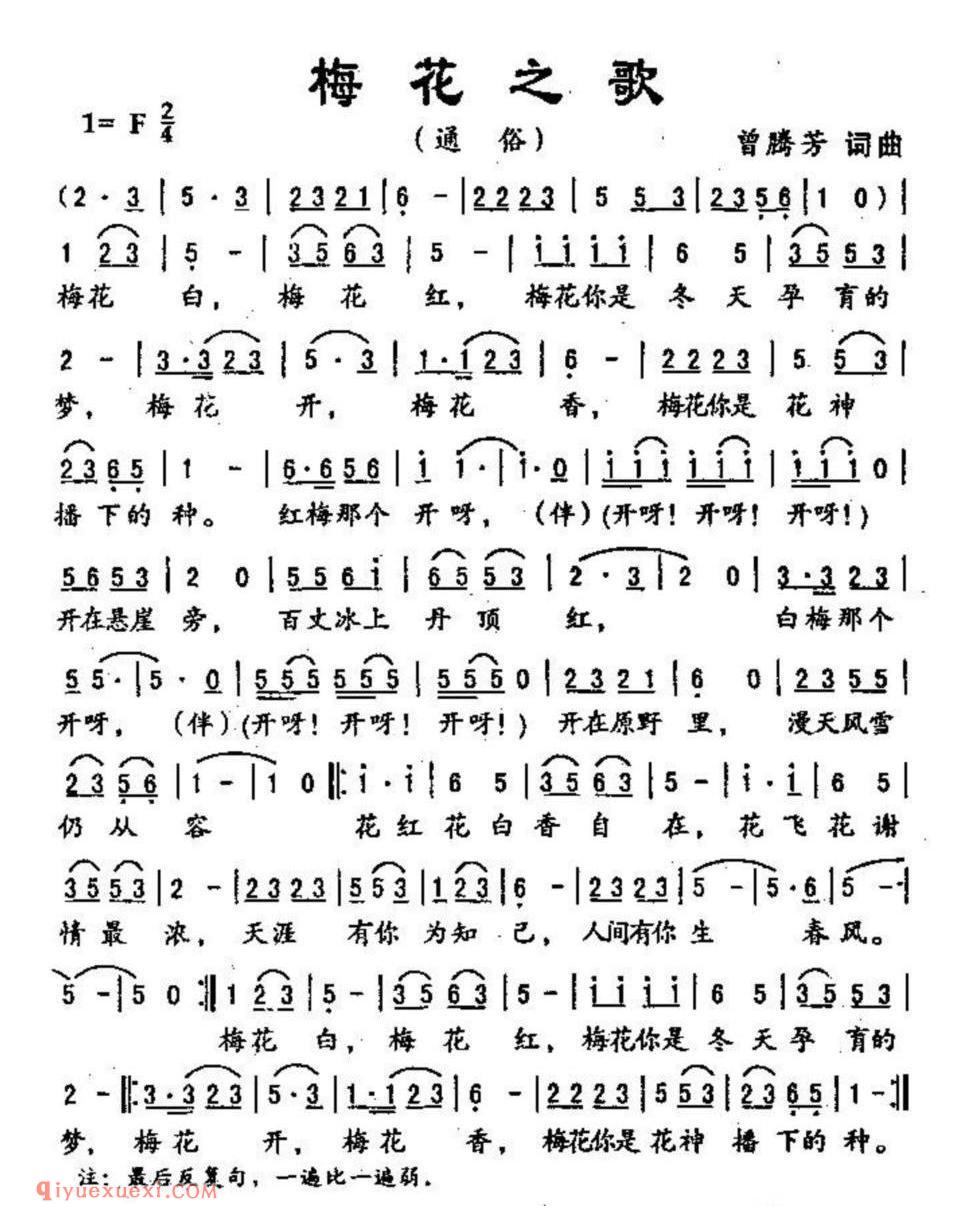 梅花之歌
1= F 2/4
（通 俗）
曾腾芳 词曲
(2·3 | 5·3 | 2321 | 6 - | 2223 | 5 53 | 2356 | 1 0) |
1 23 | 5 - | 35 63 | 5 - | i i i i | 6 5 | 35 53 |
梅花 白， 梅 花 红， 梅花你是 冬 天 孕 育的
2 - | 3·3 23 | 5·3 | 1·1 23 | 6 - | 2223 | 5 53 |
梦， 梅 花 开， 梅 花 香， 梅花你是 花 神
23 65 | 1 - | 6·6 56 | i i· | i·0 | iii iii | iii 0 |
播 下的 种。 红梅那个 开 呀，（伴）(开呀！ 开呀！ 开呀！)
5653 | 2 0 | 556i | 65 53 | 2·3 | 2 0 | 3·3 23 |
开在悬崖 旁， 百丈冰上 丹 顶 红， 白梅那个
5 5· | 5·0 | 555 555 | 555 0 | 2321 | 6 0 | 2355 |
开呀，（伴）(开呀！ 开呀！ 开呀！) 开在原野 里， 漫天风雪
23 56 | 1 - | 1 0 ‖: i·i | 6 5 | 35 63 | 5 - | i·i | 6 5 |
仍 从 容 花 红 花 白 香 自 在， 花 飞 花 谢
35 53 | 2 - | 2323 | 553 | 123 | 6 - | 2323 | 5 - | 5·6 | 5 - :|
情 最 浓， 天涯 有你 为知 己， 人间有你 生 春 风。
5 - | 5 0 :‖ 1 23 | 5 - | 35 63 | 5 - | i i i i | 6 5 | 35 53 |
梅花 白， 梅 花 红， 梅花你是 冬 天 孕 育的
2 - ‖: 3·3 23 | 5·3 | 1·1 23 | 6 - | 2223 | 5 53 | 23 65 | 1 - :‖
梦， 梅 花 开， 梅 花 香， 梅花你是 花神 播 下的 种。
注：最后反复句，一遍比一遍弱．
qiyuexuexi.COM